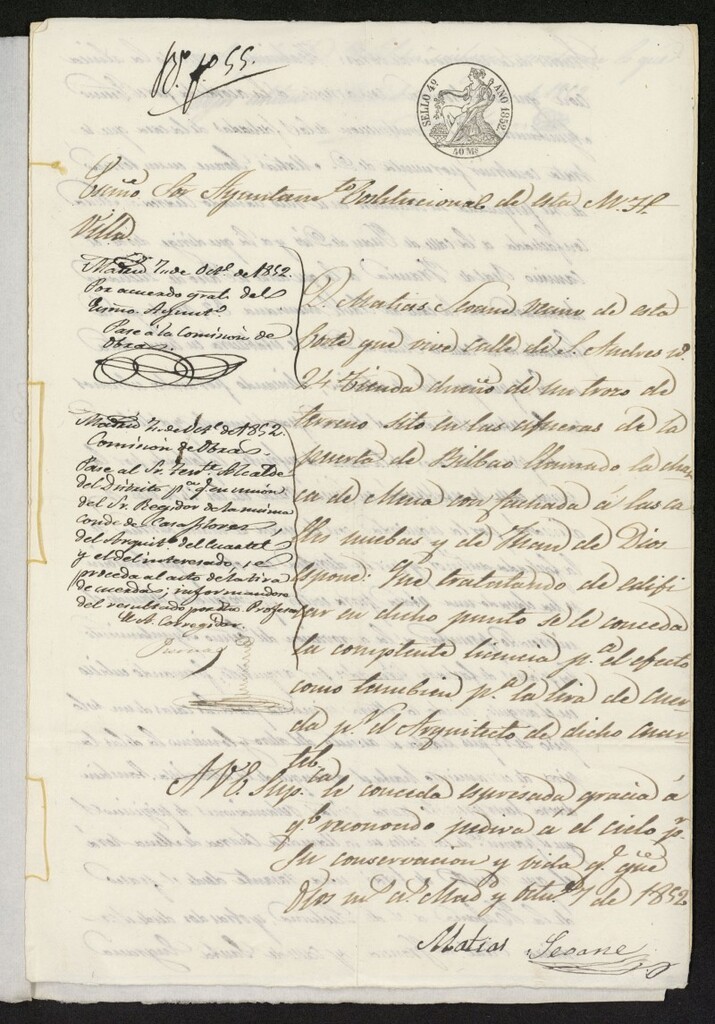 Rº fº 55.
SELLO 4º AÑO 1852
40 Ms
Excmo Sor Ayuntamto Costitucional de esta M. H.
Villa
Madrid 7 de Octe de 1852.
Por acuerdo gral. del
Excmo. Ayuntº
Pase á la Comision de
Obras.
Madrid 7, de Octe de 1852.
Comision de Obras
Pase al Sr. Tente Alcalde
del Distrito pa q. en union
del Sr. Regidor de la misma
Conde de Casaflores,
del Arquitº del Cuartel
y el del interesado, se
proceda al acto de la tira
de cuerdas; informandose
del resultado por los Profesores
El A. Corregidor.
D. Matias Seoane vecino de esta
Corte que vive calle de S. Andres nº
24 tienda dueño de un trozo de
terreno sito en las afueras de la
puerta de Bilbao llamado la cha
ca de Mena con fachada á las ca
lles nuebas y de Juan de Dios
espone: Que tratando de edifi
car en dicho punto se le conceda
la competente licencia p.a el efecto
como tambien p.a la tira de cuer
da p.r el Arquitecto de dicho cuar
tel
A V. E. Supca le conceda espresada gracia á
q.e reconocido pedira á el cielo p.r
su conservacion y vida q.e gue
Dios ms as Madd y Octue 7 de 1852
Matias Seoane